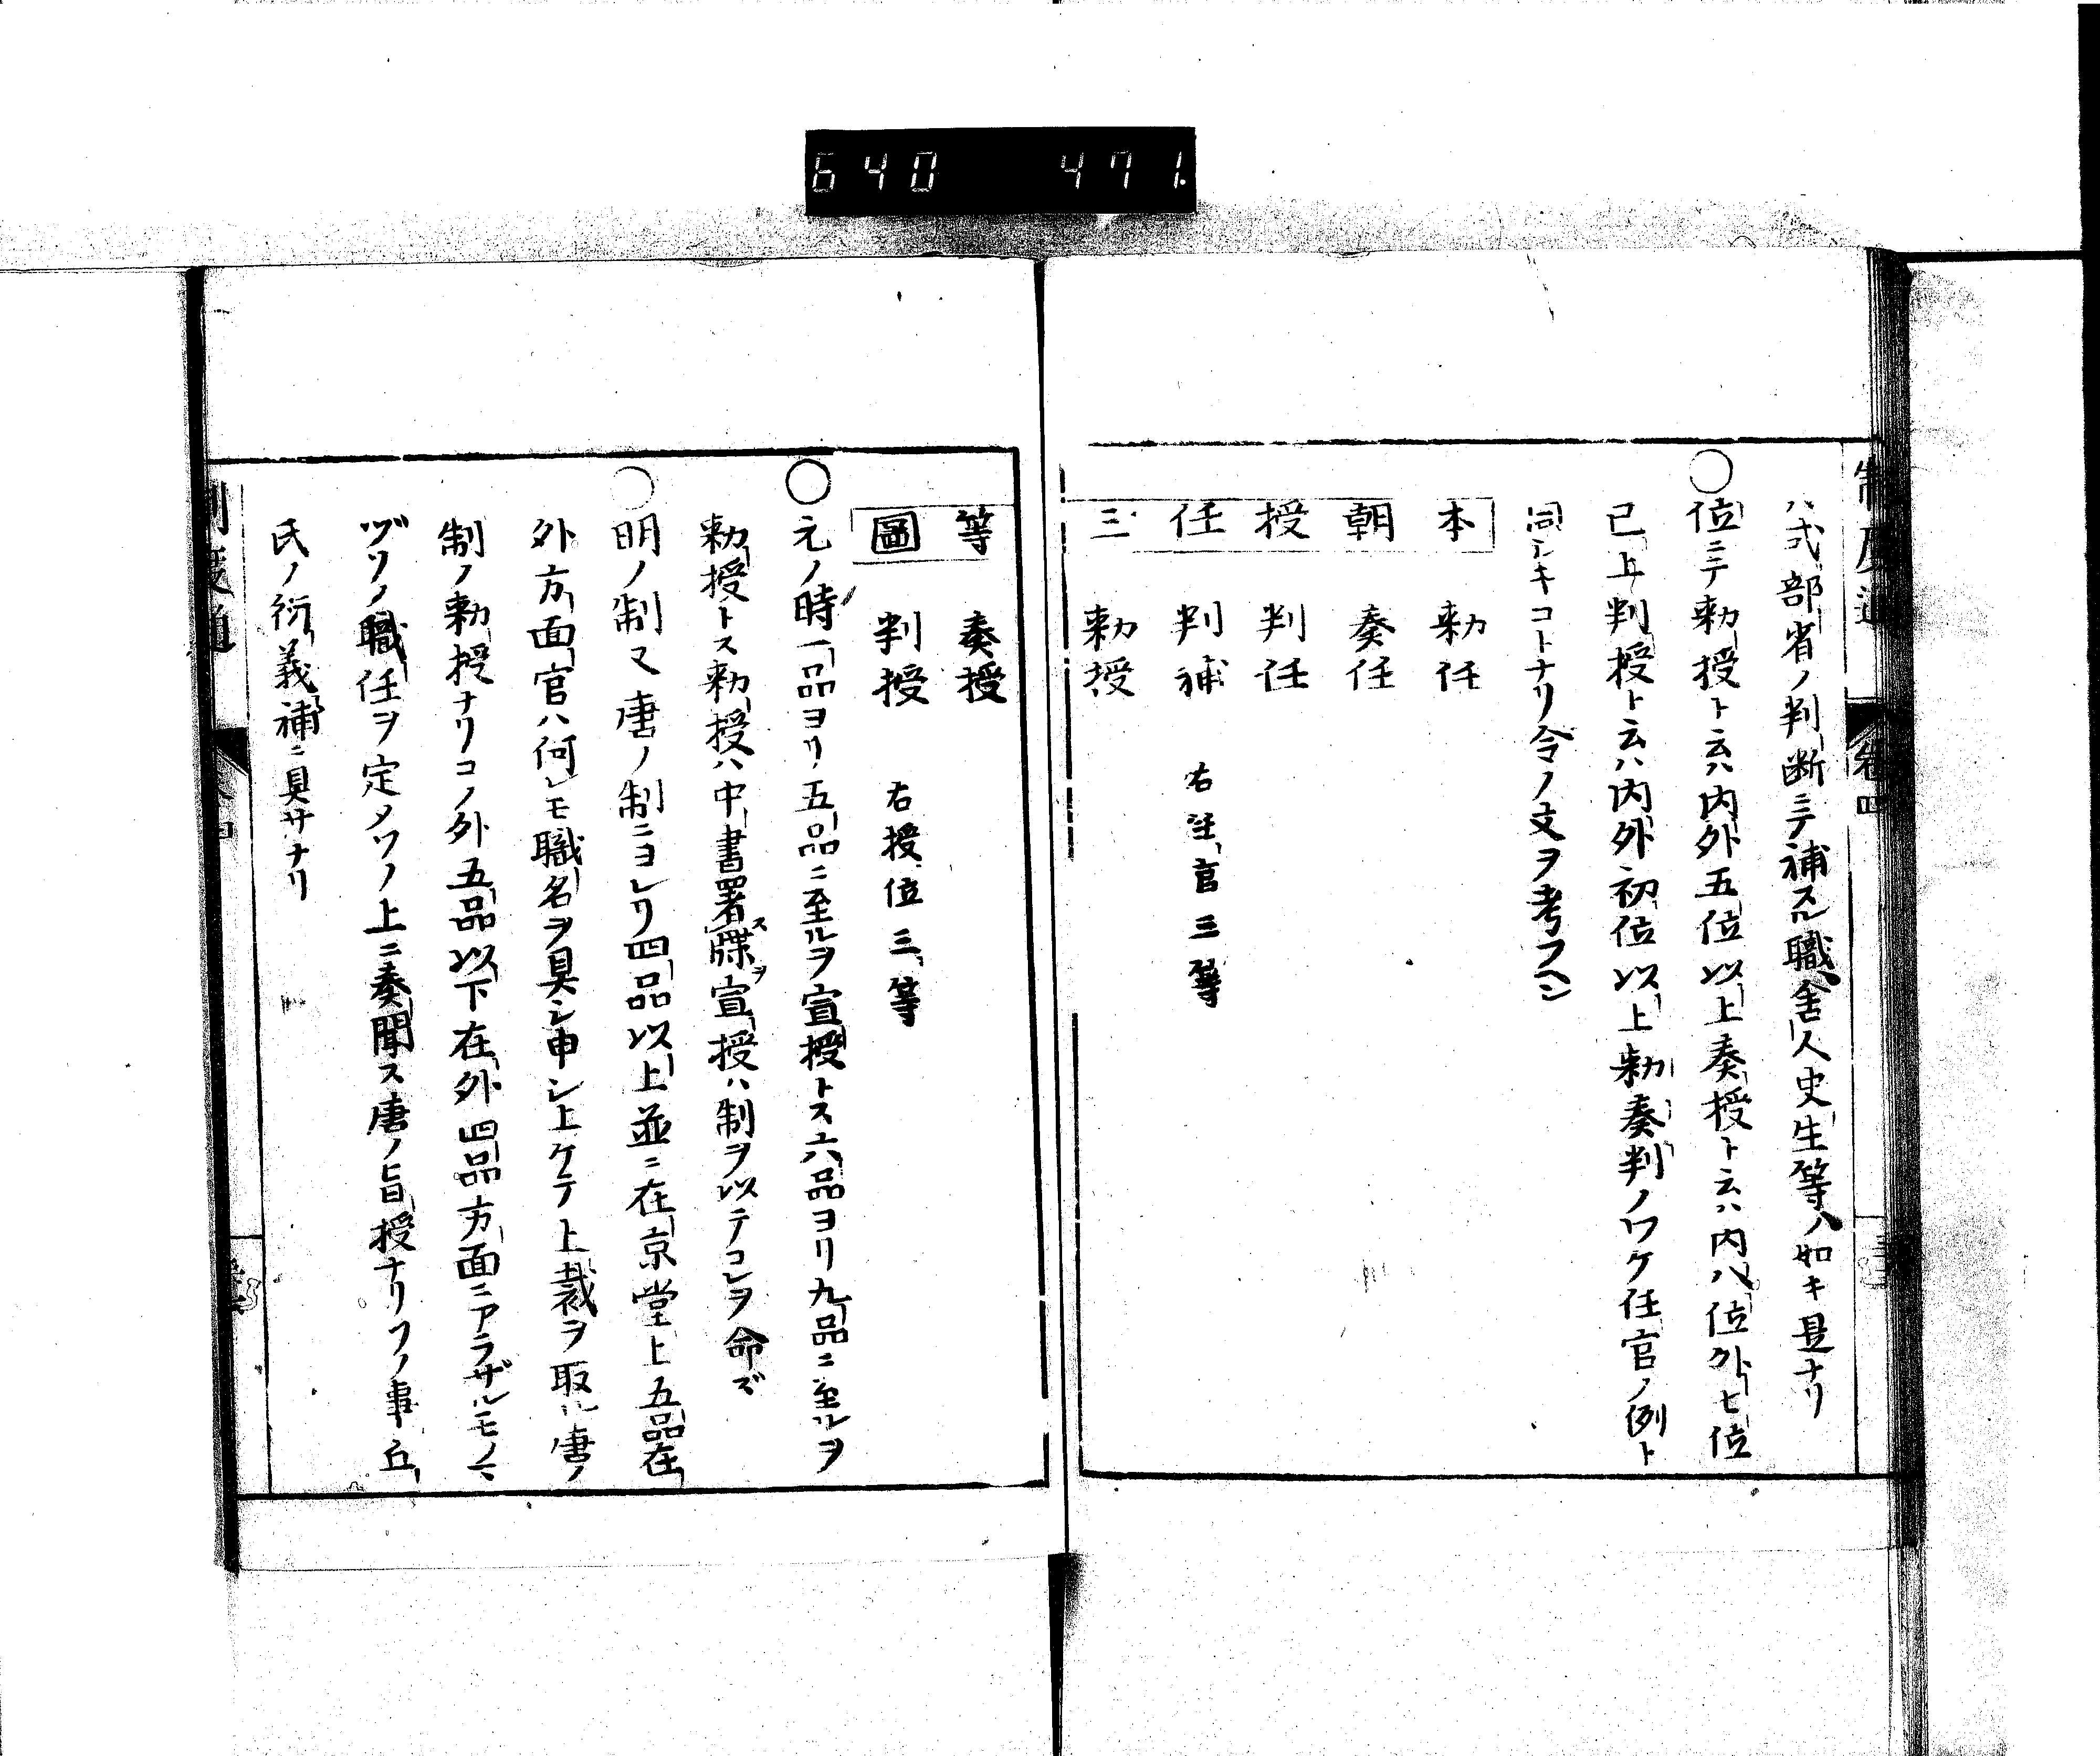 640 471
制度通 巻四
ハ式部省ノ判断ニテ補スル職舎人史生等ノ如キ是ナリ
○位ニテ勅授ト云ハ内外五位以上奏授ト云ハ内八位外七位
已上判授ト云ハ内外初位以上勅奏判ノワケ任官ノ例ト
同シキコトナリ令ノ文ヲ考フヘシ
本 勅任
朝 奏任
授 判任
任 判補 右任官三等
三 勅授
等 奏授
圖 判授 右授位三等
○元ノ時一品ヨリ五品ニ至ルヲ宣授トス六品ヨリ九品ニ至ルヲ
勅授トス勅授ハ中書署スヲ牒宣授ハ制ヲ以テコレヲ命ズ
○明ノ制又唐ノ制ニヨレリ四品以上並ニ在京堂上五品在
外方面官ハ何レモ職名ヲ具シ申シ上ケテ上裁ヲ取ル唐ノ
制ノ勅授ナリコノ外五品以下在外四品方面ニアラザルモノハ
ヅリノ職任ヲ定メソノ上ニ奏聞ス唐ノ旨授ナリソノ事丘
氏ノ衍義補ニ具サナリ